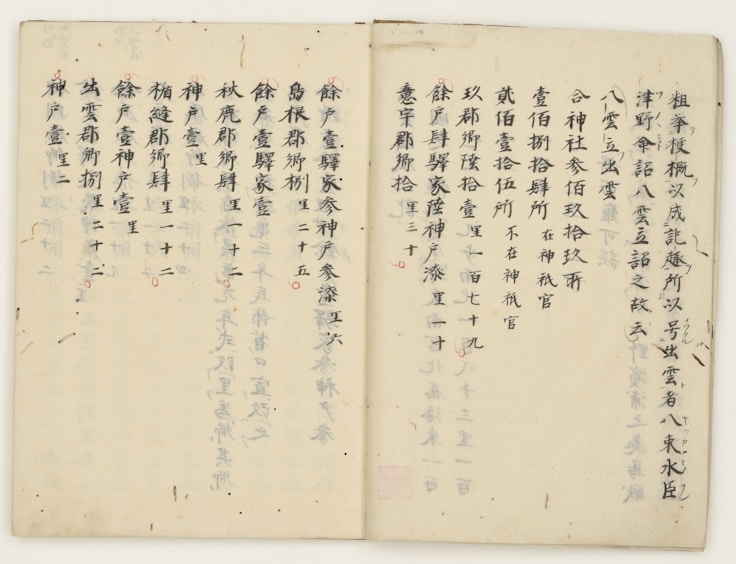 粗挙梗概以成記趣所以号出雲者八束水臣
津野命詔八雲立詔之故云
八雲立出雲
合神社参佰玖拾玖所
壹佰捌拾肆所 在神祇官
貳佰壹拾伍所 不在神祇官
玖郡郷陸拾壹 里一百七十九
餘戸肆驛家陸神戸漆 里一十
意宇郡郷拾 里三十
餘戸壹驛家参神戸参 里六
嶋根郡郷捌 里二十五
餘戸壹驛家壹
秋鹿郡郷肆 里一十二
神戸壹 里
楯縫郡郷肆 里一十二
餘戸壹神戸壹 里
出雲郡郷捌 里二十二
神戸壹 里二